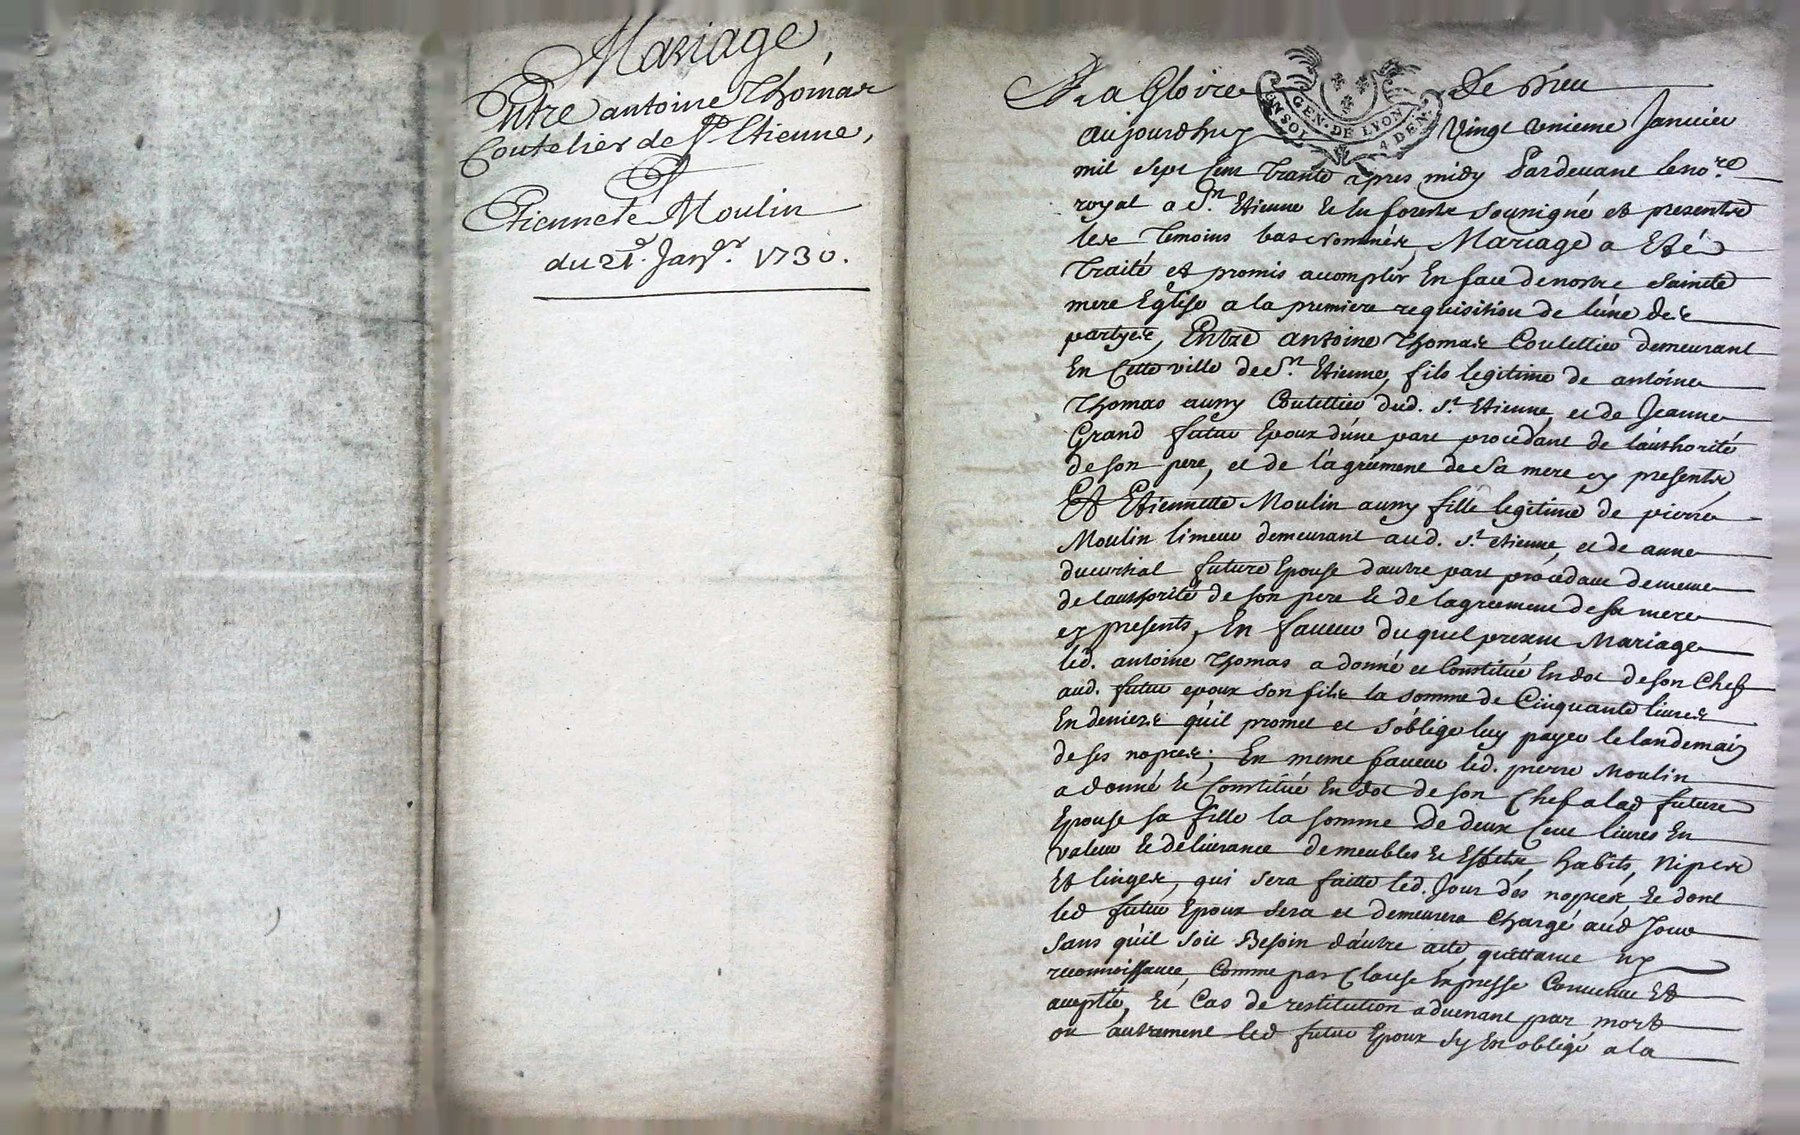 Mariage,
Entre antoine Thomas
Coutelier de St Etienne,
&
Etiennete Moulin
du 21e. Janer. 1730.
A La Gloire de Dieu
GEN. DE LYON
EN SOL 4 DEN.
aujourdhuy Vingt unieme Janvier
mil sept Cent Trante apres midy Pardevant le nore
royal a St. Etienne de forestz soubsigné et presentz
les Temoins bas nommés, Mariage a Eté
Traité et promis acomplir En face de nostre Sainte
mere Eglise a la premiere requisition de lúne des
partyes, Entre antoine Thomas Coutellier demeurant
En Cette ville de St. Etienne, fils legitime de antoine
Thomas aussy Coutellier dud. St. Etienne, et de Jeanne
Grand futur Epoux dúne part procedant de láuthorité
de son pere, et de lágrément de Sa mere cy presents,
Et Etiennette Moulin aussy fille legitime de pierre
Moulin limeur demeurant aud. St. etienne, et de anne
future Epouse dautre part procedant de meme
de lauthorité de son pere & de lagreement de sa mere
cy presents, En faveur du quel present Mariage
led. antoine Thomas a donné et Constitué En dot de son Chef
aud. futur epoux son fils la somme de Cinquante livres
En deniers qúil promet et sóblige luy payer le landemain
de ses nopces; En meme faveur led. pierre Moulin
a donné & Constitué En dot de son Chef a lad future
Epouse sa fille la somme De deux Cent livres En
valeur & délivrance de meubles & Effets, habits, Nipes
Et linges, qui sera faitte led. Jour dés nopces, & dont
led futur Epoux sera et demeurera Chargé aud Jour
Sans qúil soit Besoin dáutre acte, quittance ny
reconnoissance, Comme par Clause Expresse Convenue Et
aceptée, Et Cas de restitution advenant par mort
ou áutrement led futur Epoux sy En obligé a la